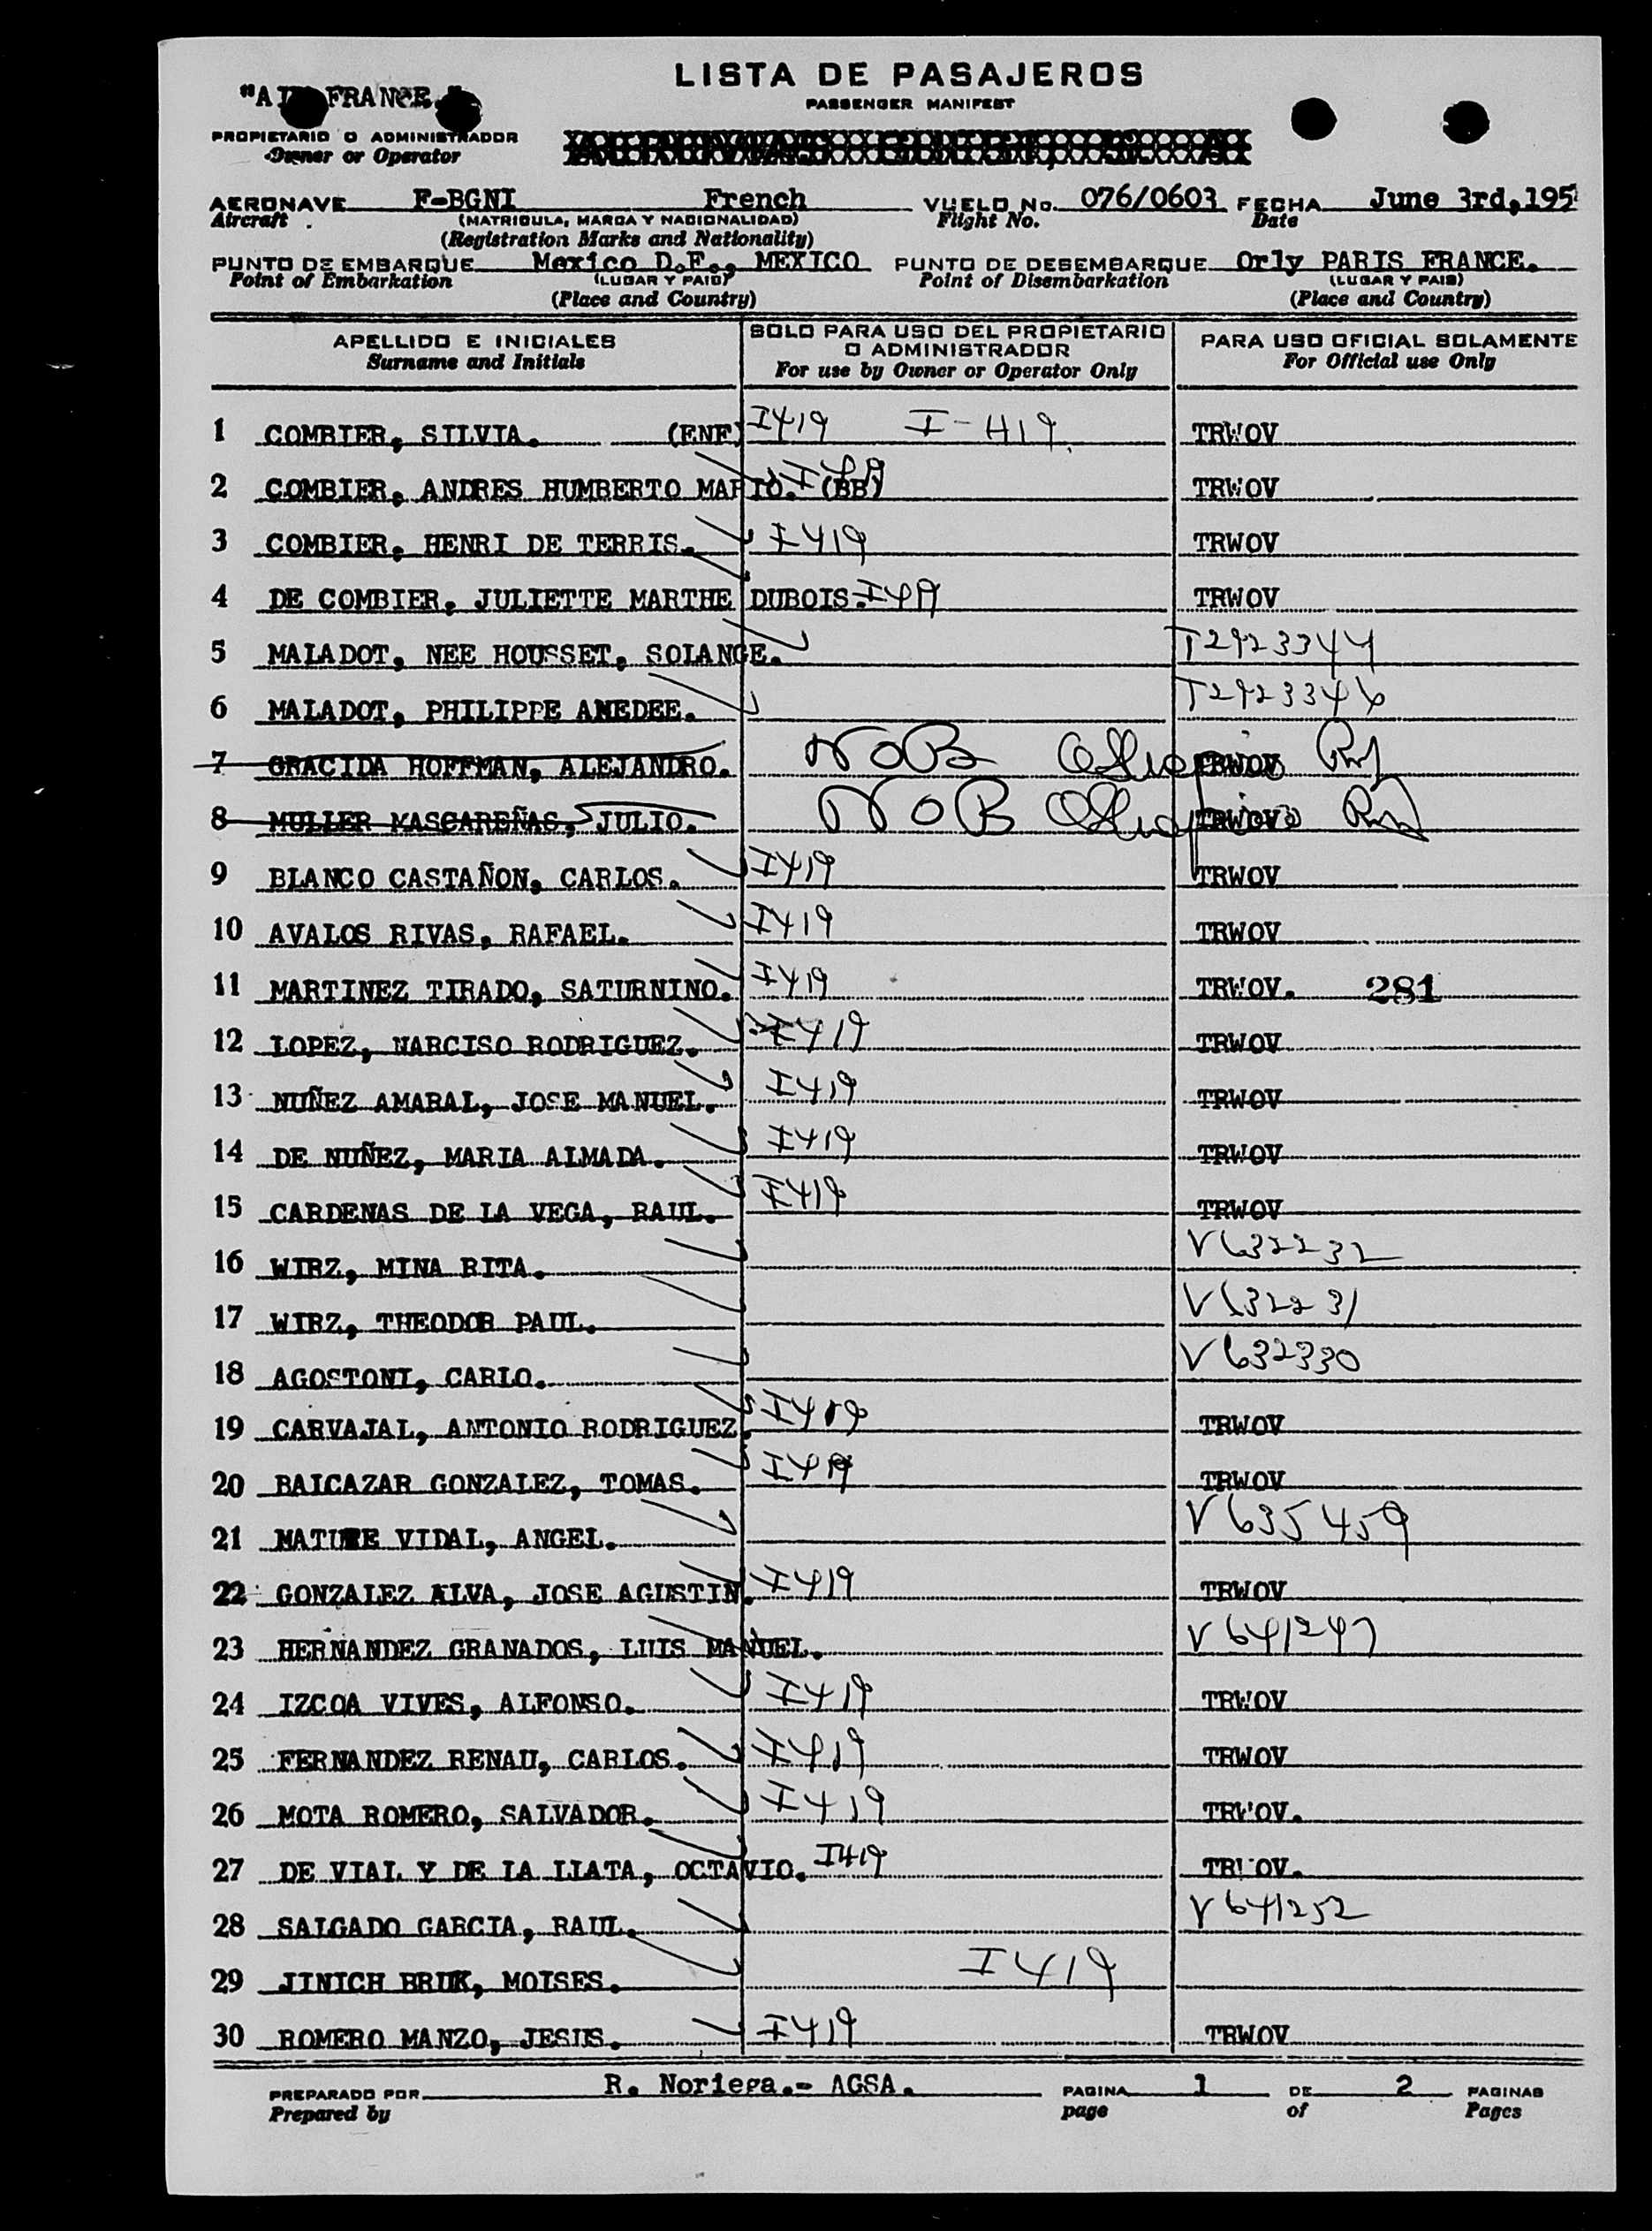 LISTA DE PASAJEROS
PASSENGER MANIFEST
"AIR FRANCE"
PROPIETARIO O ADMINISTRADOR
Owner or Operator
AERONAVE F-BGNI French VUELO No. 076/0603 FECHA June 3rd, 195
Aircraft (MATRICULA, MARCA Y NACIONALIDAD) Flight No. Date
(Registration Marks and Nationality)
PUNTO DE EMBARQUE Mexico D.F., MEXICO PUNTO DE DESEMBARQUE Orly PARIS FRANCE.
Point of Embarkation (LUGAR Y PAIS) Point of Disembarkation (LUGAR Y PAIS)
(Place and Country) (Place and Country)
APELLIDO E INICIALES SOLO PARA USO DEL PROPIETARIO O ADMINISTRADOR PARA USO OFICIAL SOLAMENTE
Surname and Initials For use by Owner or Operator Only For Official use Only
1 COMBIER, SILVIA. (ENF) I419 I-419. TRWOV
2 COMBIER, ANDRES HUMBERTO MARIO. (BB) I419 TRWOV
3 COMBIER, HENRI DE TERRIS. I419 TRWOV
4 DE COMBIER, JULIETTE MARTHE DUBOIS. I419 TRWOV
5 MALADOT, NEE HOUSSET, SOLANGE. T2923344
6 MALADOT, PHILIPPE AMEDEE. T2923346
7 GRACIDA HOFFMAN, ALEJANDRO. NOB TRWOV
8 MULLER MASCAREÑAS, JULIO. NOB TRWOV
9 BLANCO CASTAÑON, CARLOS. I419 TRWOV
10 AVALOS RIVAS, RAFAEL. I419 TRWOV
11 MARTINEZ TIRADO, SATURNINO. I419 TRWOV. 281
12 LOPEZ, NARCISO RODRIGUEZ. I419 TRWOV
13 NUÑEZ AMARAL, JOSE MANUEL. I419 TRWOV
14 DE NUÑEZ, MARIA ALMADA. I419 TRWOV
15 CARDENAS DE LA VEGA, RAUL. I419 TRWOV
16 WIRZ, MINA RITA. V632232
17 WIRZ, THEODOR PAUL. V632231
18 AGOSTONI, CARLO. V632330
19 CARVAJAL, ANTONIO RODRIGUEZ. I419 TRWOV
20 BALCAZAR GONZALEZ, TOMAS. I419 TRWOV
21 MATUTE VIDAL, ANGEL. V635459
22 GONZALEZ ALVA, JOSE AGUSTIN. I419 TRWOV
23 HERNANDEZ GRANADOS, LUIS MANUEL. V641247
24 IZCOA VIVES, ALFONSO. I419 TRWOV
25 FERNANDEZ RENAU, CARLOS. I419 TRWOV
26 MOTA ROMERO, SALVADOR. I419 TRWOV.
27 DE VIAL Y DE LA LLATA, OCTAVIO. I419 TRWOV.
28 SALGADO GARCIA, RAUL. V641252
29 JINICH BRUK, MOISES. I419
30 ROMERO MANZO, JESUS. I419 TRWOV
PREPARADO POR R. Noriega.- AGSA. PAGINA 1 DE 2 PAGINAS
Prepared by page of Pages